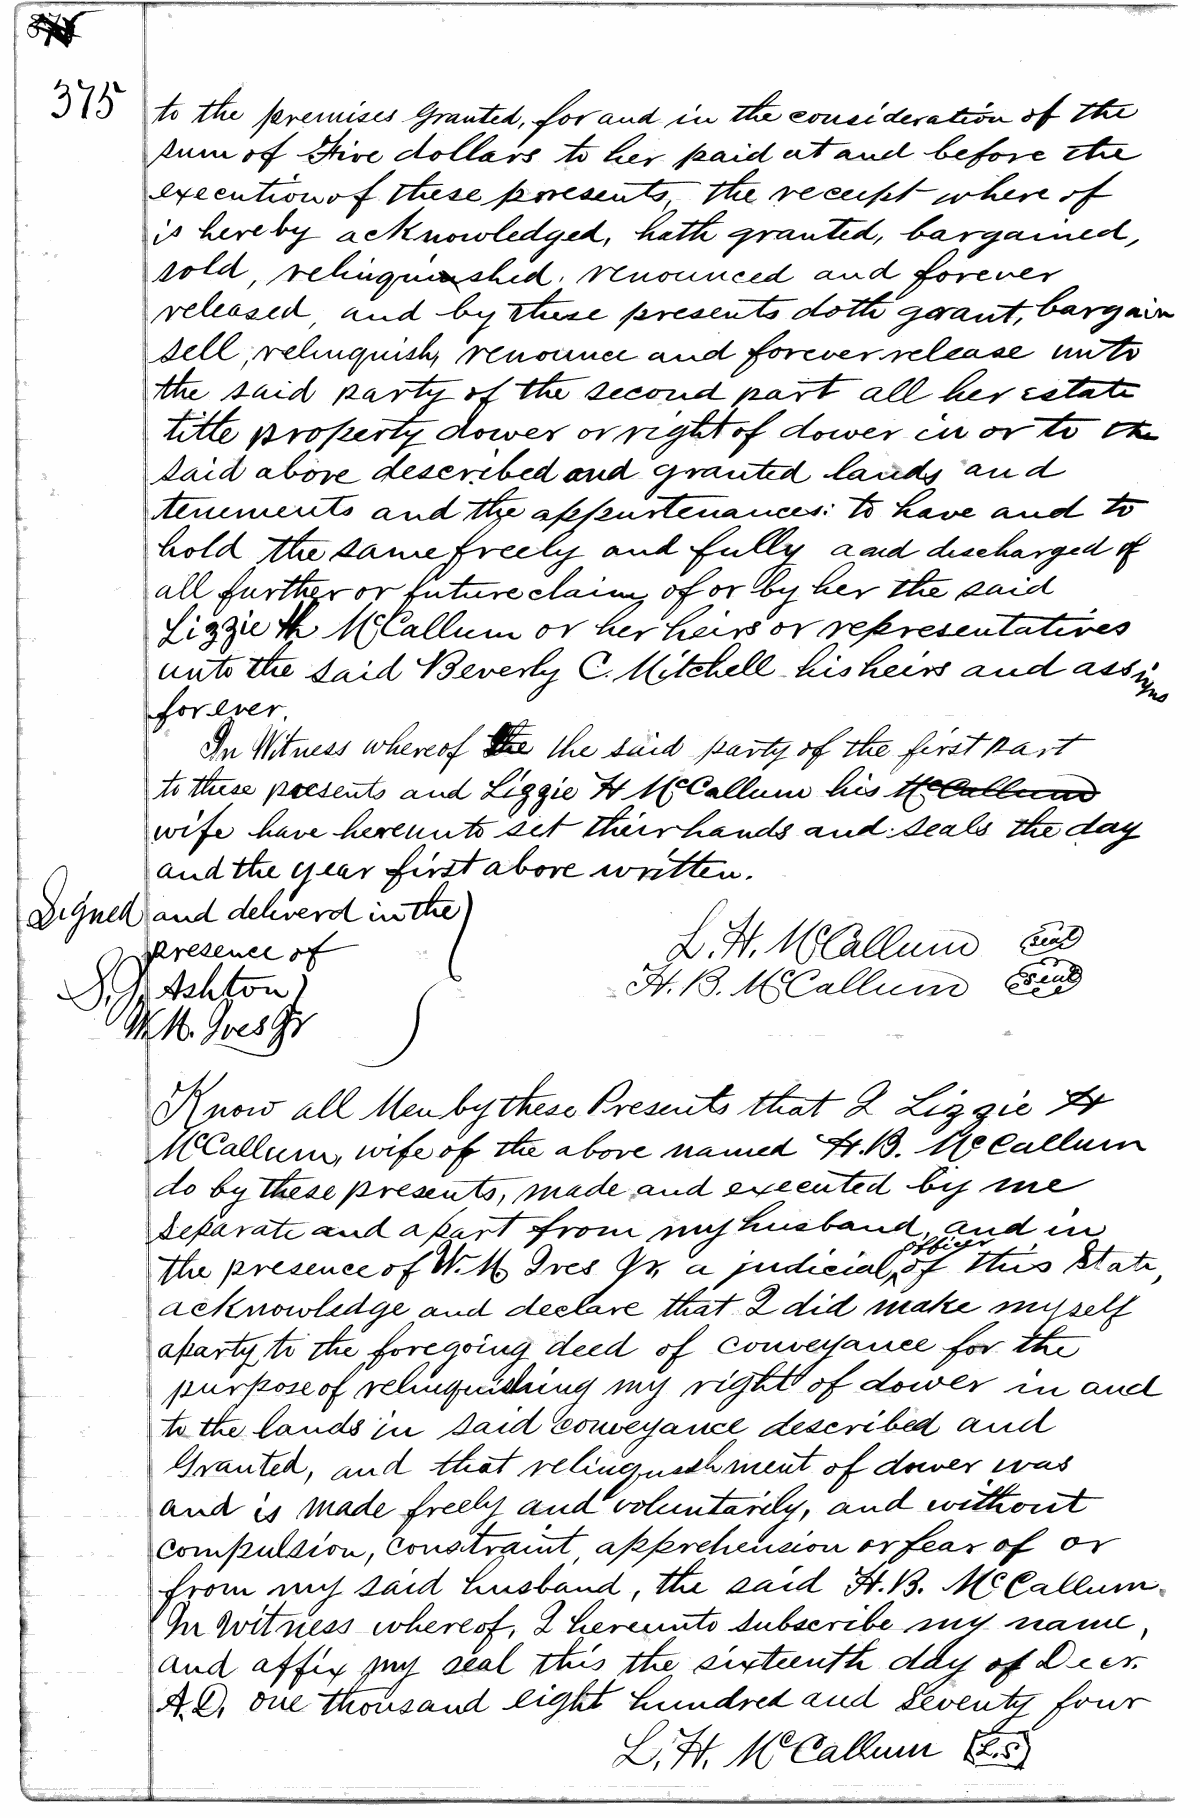 375
to the premises Granted, for and in the consideration of the
sum of Five dollars to her paid at and before the
execution of these presents, the receipt where of
is hereby acknowledged, hath granted, bargained,
sold, relinquished, renounced and forever
released, and by these presents doth grant, bargain
sell, relinquish, renounce and forever release unto
the said party of the second part all her estate
title property dower or right of dower in or to the
said above described and granted lands and
tenements and the appurtenances: to have and to
hold the same freely and fully and discharged of
all further or future claim of or by her the said
Lizzie H McCallum or her heirs or representatives
unto the said Beverly C. Mitchell his heirs and assigns
forever.
In Witness whereof the the said party of the first part
to these presents and Lizzie H McCallum his McCallum
wife have hereunto set their hands and seals the day
and the year first above written.
Signed and deliverd in the
presence of
L. H. McCallum (seal)
S. J. Ashton
H. B. McCallum (seal)
W. M. Ives Jr
Know all Men by these Presents that I Lizzie H
McCallum, wife of the above named H. B. McCallum
do by these presents, made and executed by me
separate and apart from my husband, and in
the presence of W. M. Ives Jr. a judicial officer of this State,
acknowledge and declare that I did make myself
a party to the foregoing deed of conveyance for the
purpose of relinquishing my right of dower in and
to the lands in said conveyance described and
Granted, and that relinquishment of dower was
and is made freely and voluntarily, and without
compulsion, constraint, apprehension or fear of or
from my said husband, the said H. B. McCallum.
In Witness whereof, I hereunto subscribe my name,
and affix my seal this the sixteenth day of Decr.
A.D. one thousand eight hundred and seventy four
L. H. McCallum (L.S)